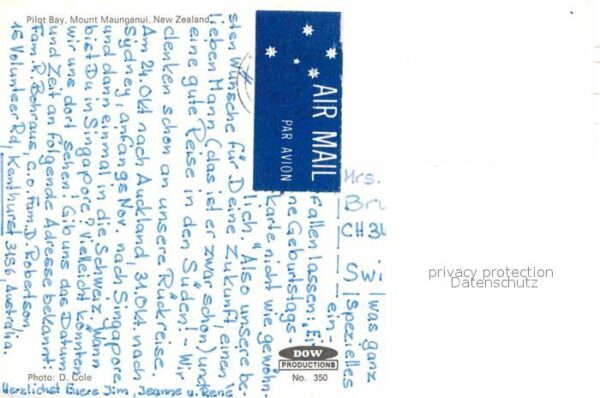 Pilot Bay, Mount Maunganui, New Zealand
AIR MAIL
PAR AVION
Mrs.
Bru
CH 34
Swi
was ganz
spezielles
ein-
fallen lassen: „Ei
ne Geburtstags-
karte nicht wie gewöhn-
lich." Also unsere be-
sten Wünsche für Deine Zukunft, einen
lieben Mann (das ist er zwar schon) und
eine gute Reise in den Süden! - Wir
denken schon an unsere Rückreise.
Am 24. Okt nach Auckland, 31. Okt. nach
Sydney, anfangs Nov. nach Singapore
und dann einmal in die Schweiz. Wann
bist Du in Singapore? Vielleicht könnten
wir uns dort sehen! Gib uns das Datum
und Zeit an folgende Adresse bekannt:
Fam. R. Bohraus, c.o. Fam. D. Robertson,
15 Volunteer Rd, Kenthurst 3156 Australia.
Herzlichst Euere Jim, Jeanne u. René
Photo: D. Cole
DOW
PRODUCTIONS
No. 350
privacy protection
Datenschutz